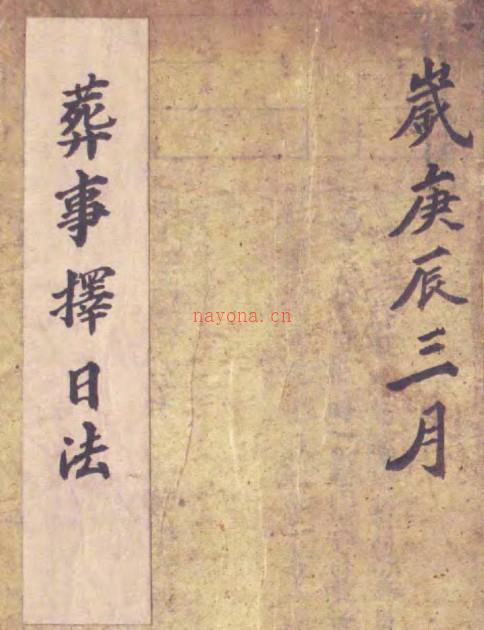 歲庚辰三月
葬事擇日法
nayona.cn